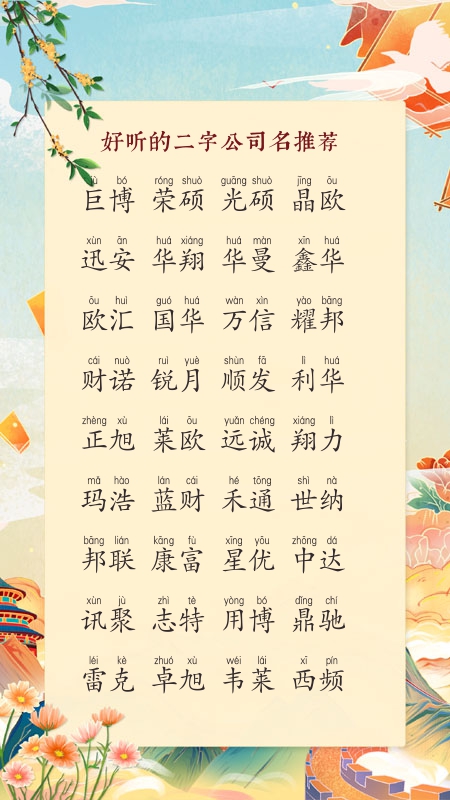 好听的二字公司名推荐
jù bó róng shuò guāng shuò jīng ōu
巨博 荣硕 光硕 晶欧
xùn ān huá xiáng huá màn xīn huá
迅安 华翔 华曼 鑫华
ōu huì guó huá wàn xìn yào bāng
欧汇 国华 万信 耀邦
cái nuò ruì yuè shùn fā lì huá
财诺 锐月 顺发 利华
zhèng xù lái ōu yuǎn chéng xiáng lì
正旭 莱欧 远诚 翔力
mǎ hào lán cái hé tōng shì nà
玛浩 蓝财 禾通 世纳
bāng lián kāng fù xīng yōu zhōng dá
邦联 康富 星优 中达
xùn jù zhì tè yòng bó dǐng chí
讯聚 志特 用博 鼎驰
léi kè zhuó xù wéi lái xī pín
雷克 卓旭 韦莱 西频